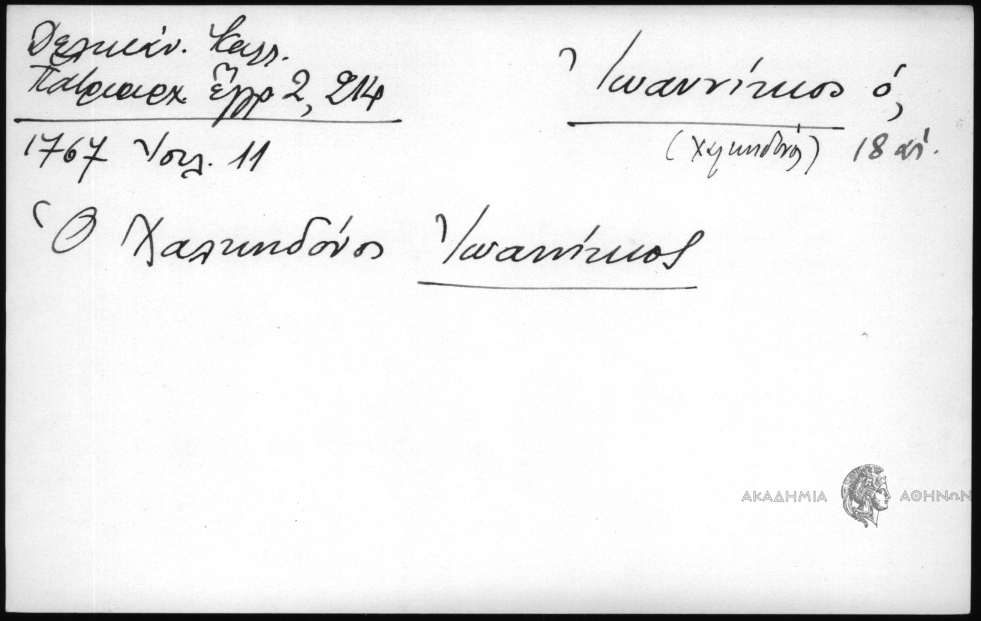 Δελικάν. Καλλ.
Πατριαρχ. Ἔγγρ 2, 214
1767 Ἰουλ. 11
Ἰωαννίκιος ὁ,
(Χαλκηδόνος) 18 αἰ.
Ὁ Χαλκηδόνος Ἰωαννίκιος
ΑΚΑΔΗΜΙΑ ΑΘΗΝΩΝ